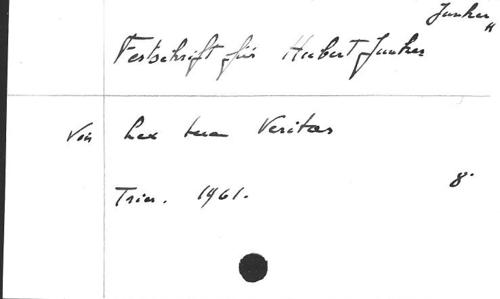 Junker, H
Festschrift für Hubert Junker
Von Lex tua Veritas
Trier. 1961. 8°